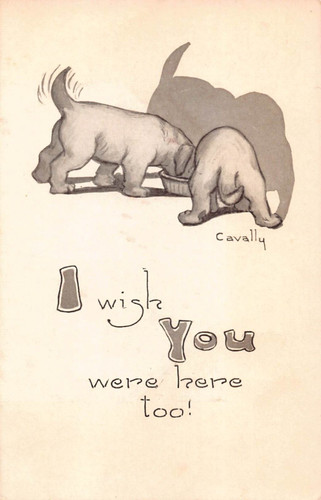 Cavally
I wish
You
were here
too!